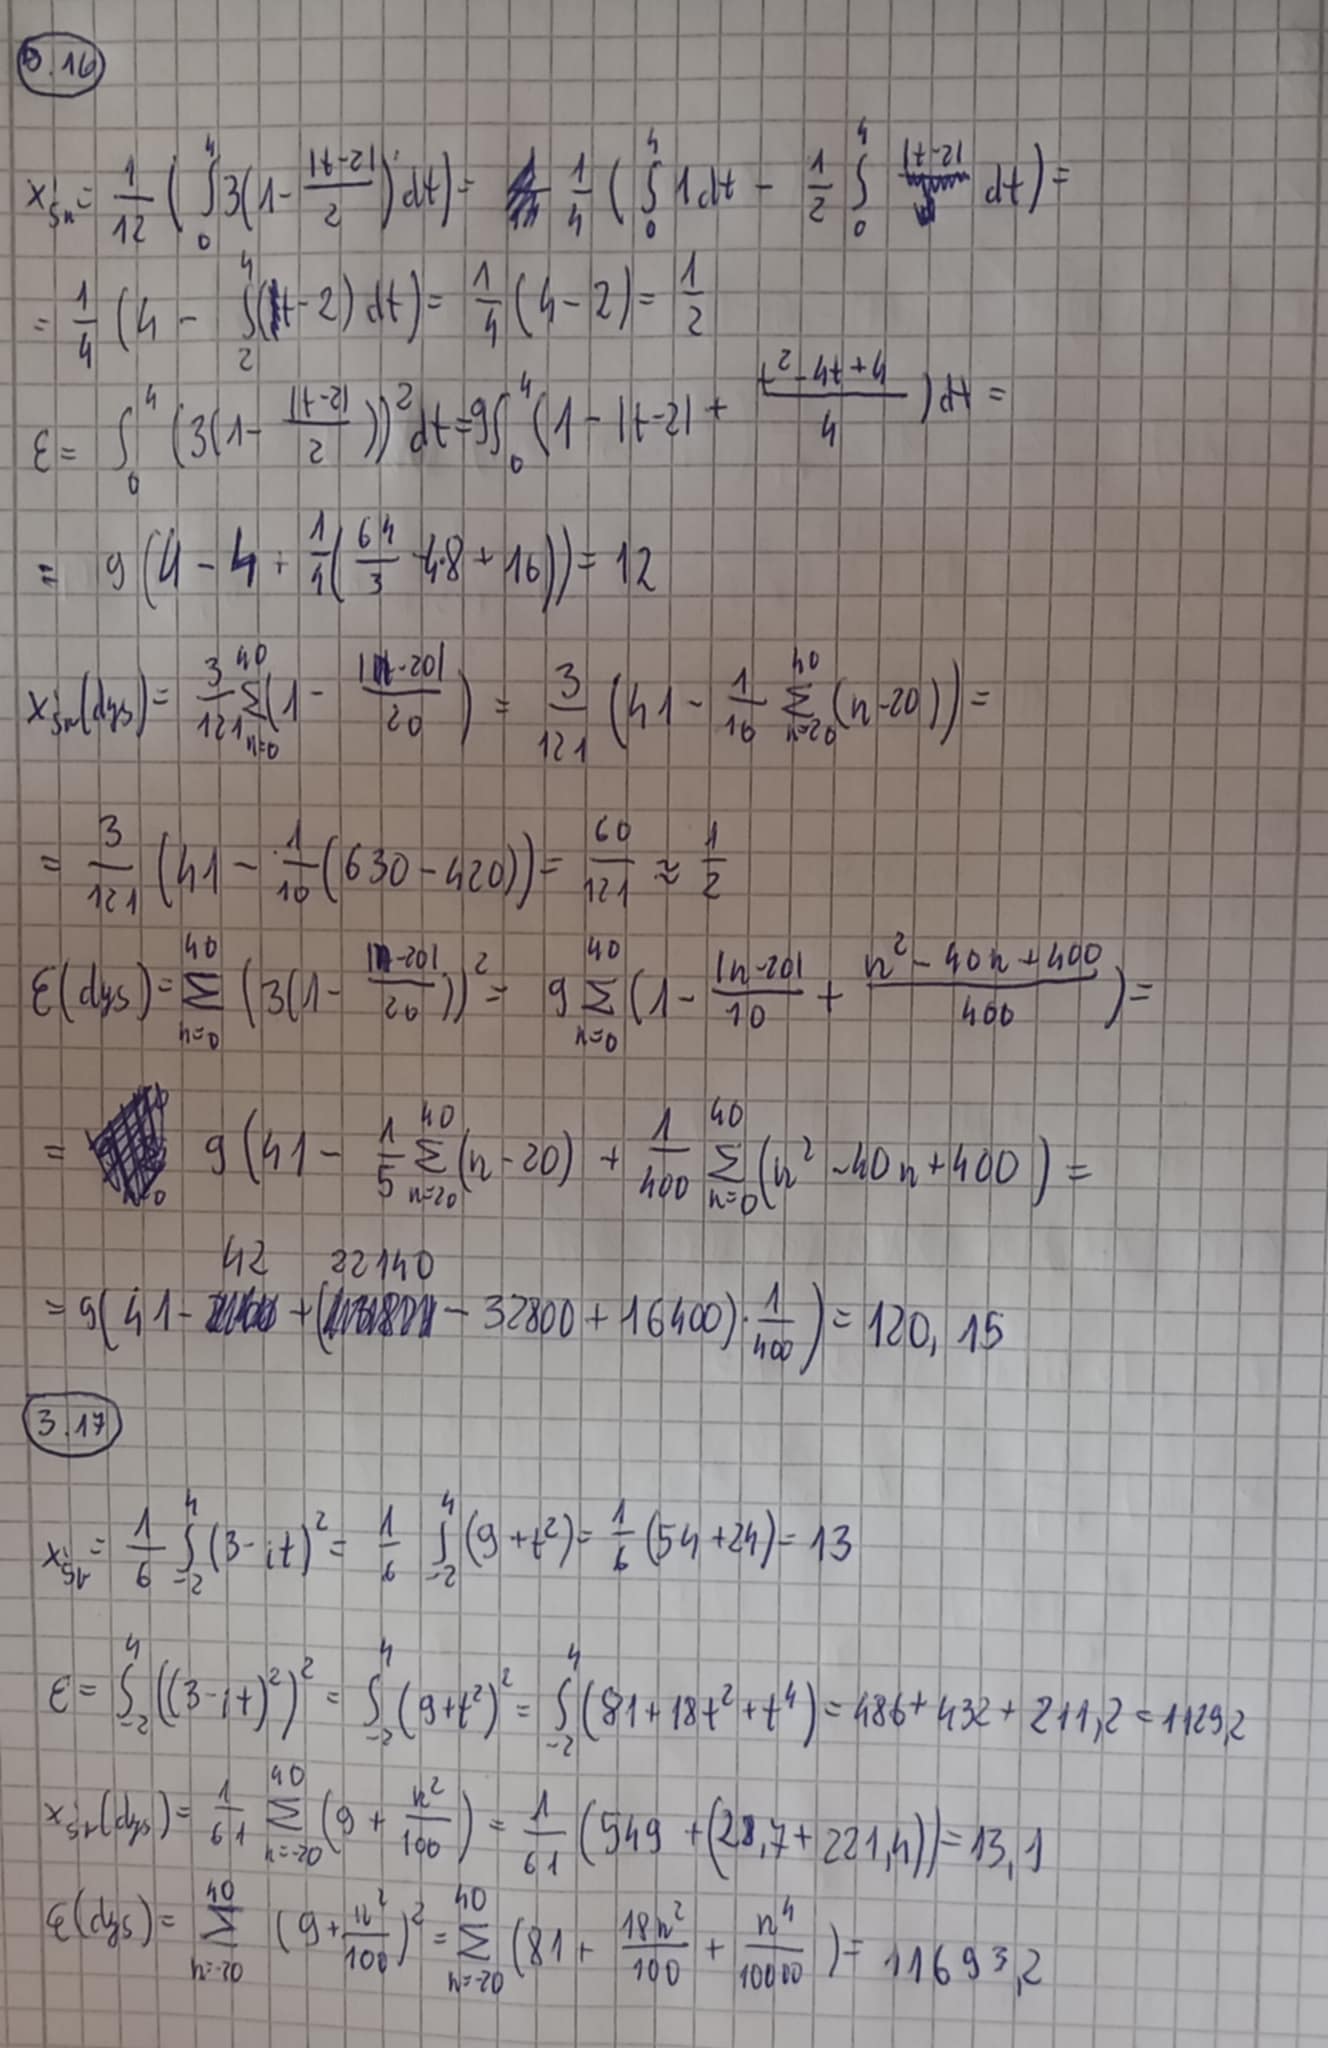 3.16
x_śr = 1/12 (∫_0^4 3(1 - |t-2|/2) dt) = 1/4 (∫_0^4 1 dt - 1/2 ∫_0^4 |t-2| dt) =
= 1/4 (4 - ∫_2^4 (t-2) dt) = 1/4 (4-2) = 1/2
ε = ∫_0^4 (3(1 - |t-2|/2))^2 dt = 9∫_0^4 (1 - |t-2| + (t^2-4t+4)/4) dt =
= 9(4 - 4 + 1/4(64/3 - 4·8 + 16)) = 12
x_śr(dys) = 3/121 Σ_{n=0}^{40} (1 - |n-20|/20) = 3/121 (41 - 1/10 Σ_{n=20}^{40} (n-20)) =
= 3/121 (41 - 1/10 (630-420)) = 60/121 ≈ 1/2
ε(dys) = Σ_{n=0}^{40} (3(1 - |n-20|/20))^2 = 9 Σ_{n=0}^{40} (1 - |n-20|/10 + (n^2-40n+400)/400) =
= 9(41 - 1/5 Σ_{n=20}^{40} (n-20) + 1/400 Σ_{n=0}^{40} (n^2-40n+400) =
= 9(41 - 42 + (22140 - 32800 + 16400)·1/400) = 120,15
3.17
x_śr = 1/6 ∫_{-2}^4 (3-it)^2 = 1/6 ∫_{-2}^4 (9+t^2) = 1/6 (54+24) = 13
ε = ∫_{-2}^4 ((3-it)^2)^2 = ∫_{-2}^4 (9+t^2)^2 = ∫_{-2}^4 (81+18t^2+t^4) = 486+432+211,2 = 1129,2
x_śr(dys) = 1/61 Σ_{n=-20}^{40} (9 + n^2/100) = 1/61 (549 + (28,7+221,4)) = 13,1
ε(dys) = Σ_{n=-20}^{40} (9 + n^2/100)^2 = Σ_{n=-20}^{40} (81 + 18n^2/100 + n^4/10000) = 11693,2